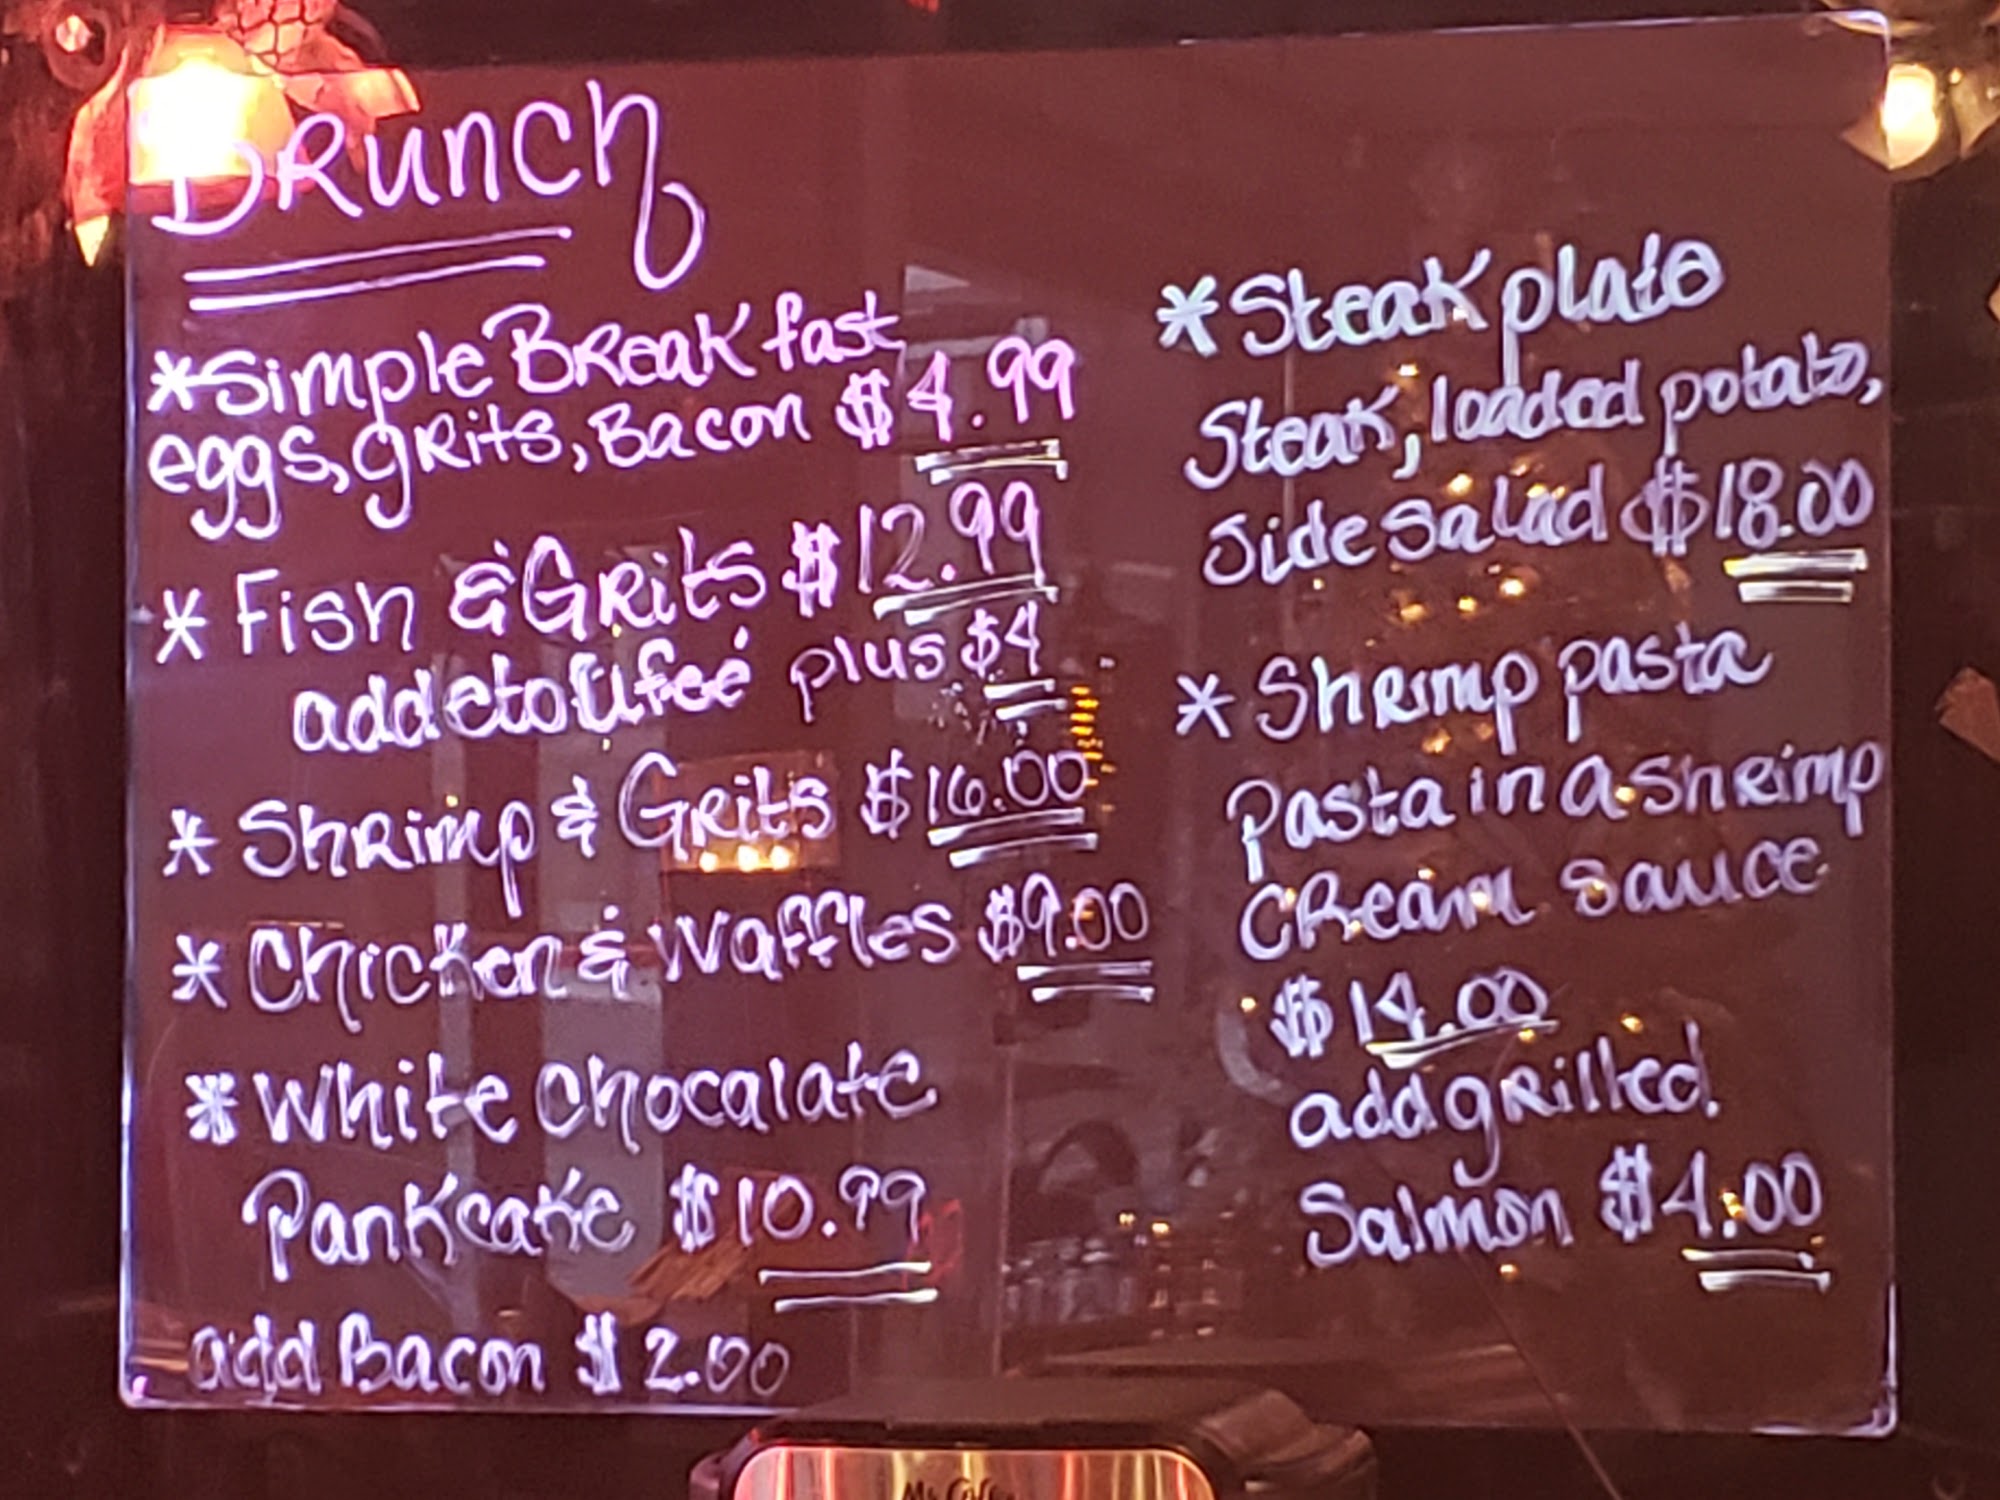 BRunch
*Simple BReakfast
eggs, gRits, Bacon $4.99
* Fish & GRits $12.99
add etoufeé plus $4
* ShRimp & GRits $16.00
* Chicken & Waffles $9.00
* White chocalate
Pankcake $10.99
add Bacon $2.00
* Steak plate
Steak, loaded potato,
Side Salad $18.00
* ShRimp pasta
Pasta in a shRimp
CReam sauce
$14.00
add gRilled
Salmon $4.00
Mr. Coffee